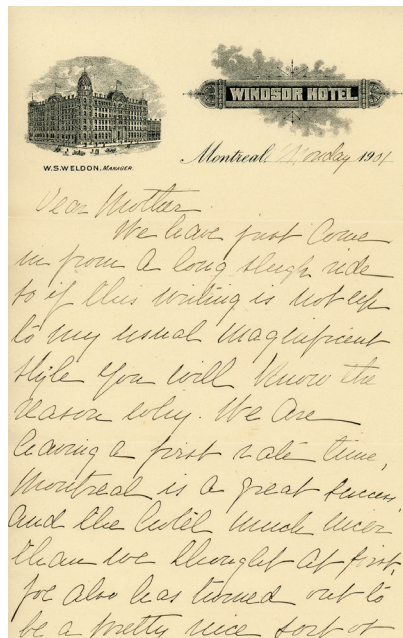 WINDSOR HOTEL.
W.S.WELDON, MANAGER.
Montreal, Monday 1901
Dear Mother
We have just come
in from a long sleigh ride
so if this writing is not up
to my usual magnificent
style you will know the
reason why. We are
having a first rate time,
Montreal is a great success,
and the hotel much nicer
than we thought at first,
Joe also has turned out to
be a pretty nice sort of